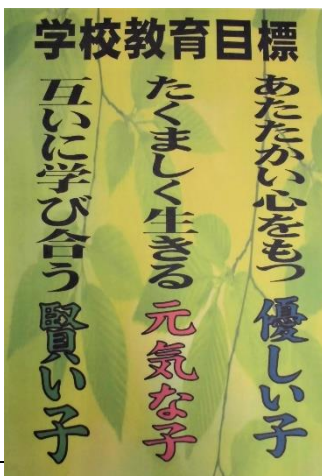 学校教育目標
あたたかい心をもつ優しい子
たくましく生きる元気な子
互いに学び合う賢い子